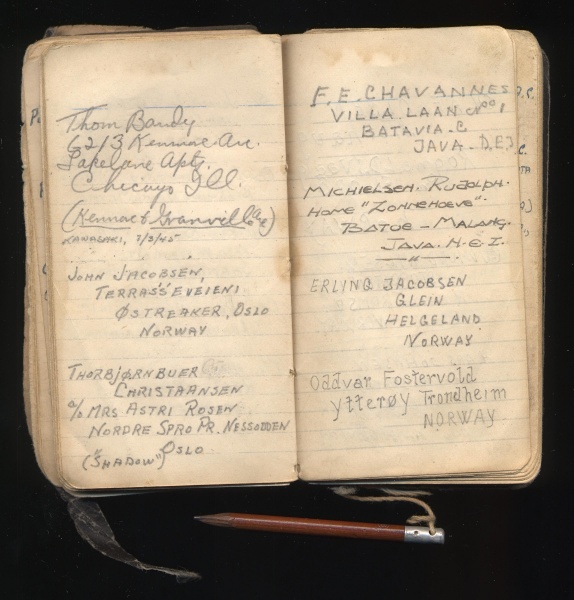 Thom Bandy
6213 Kenmore Av.
Lakelane Apts.
Chicago Ill.
(Kenmore & Granville Ave)
KAWASAKI, 7/3/45
JOHN JACOBSEN,
TERRASS'EVEIEN 1
ØSTREAKER, OSLO
NORWAY
THORBJØRN BUER
CHRISTAANSEN
c/o MRS ASTRI ROSEN
NORDRE SPRO PR. NESSODDEN
("SHADOW") OSLO
F. E. CHAVANNES
VILLA LAAN Nº 1
BATAVIA. C
JAVA. D.E.I
MICHIELSEN. RUDOLPH.
HOME "ZONNEHOEVE".
BATOE - MALANG.
JAVA. N.E.I.
ERLING JACOBSEN
GLEIN
HELGELAND
NORWAY
Oddvar Fostervold
Ytterøy Trondheim
NORWAY